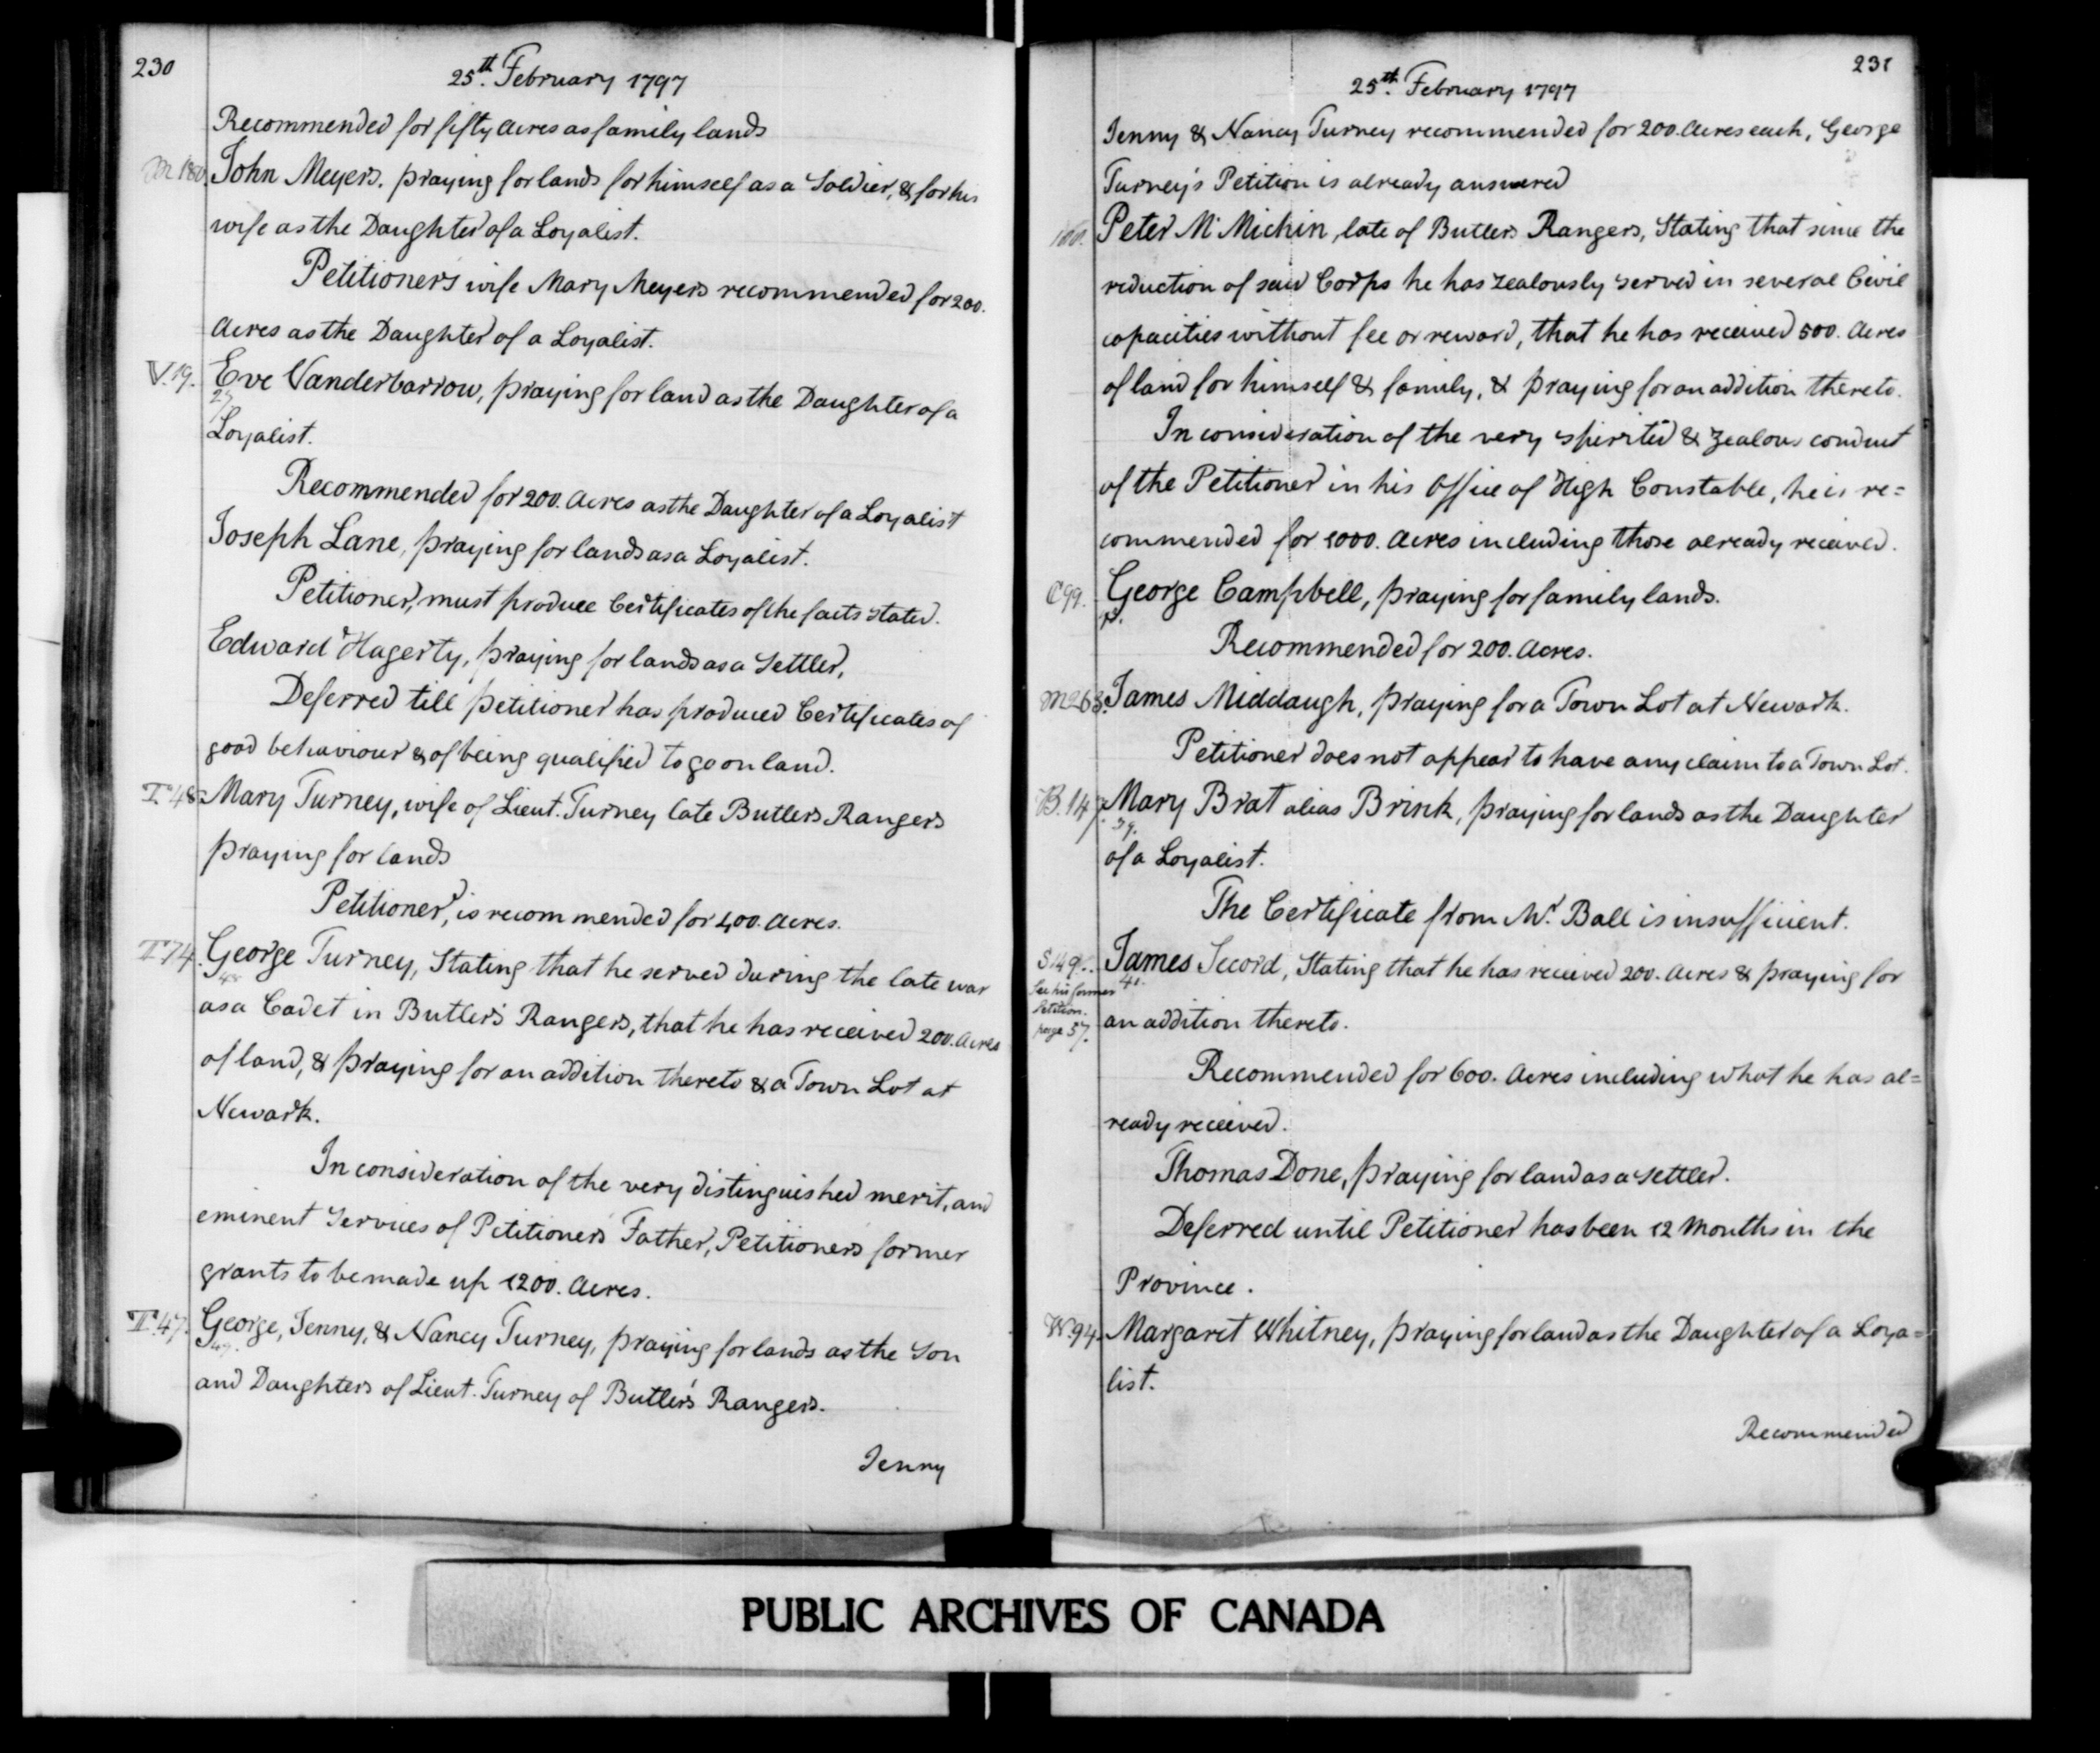 230
25th. February 1797
Recommended for fifty Acres as family lands
M 180. John Meyers. praying for lands for himself as a Soldier, & for his
wife as the Daughter of a Loyalist.
Petitioner's wife Mary Meyers recommended for 200.
Acres as the Daughter of a Loyalist.
V. 19. Eve Vanderbarrow, praying for land as the Daughter of a
27
Loyalist.
Recommended for 200. Acres as the Daughter of a Loyalist
Joseph Lane, praying for lands as a Loyalist.
Petitioner, must produce Certificates of the facts stated.
Edward Hagerty, praying for lands as a Settler,
Deferred till petitioner has produced Certificates of
good behaviour & of being qualified to go on land.
T. 48. Mary Turney, wife of Lieut. Turney late Butlers Rangers
praying for lands
Petitioner, is recommended for 400. Acres.
T 74. George Turney, Stating that he served during the late war
48
as a Cadet in Butler's Rangers, that he has received 200. Acres
of land, & praying for an addition thereto & a Town Lot at
Newark.
In consideration of the very distinguished merit, and
eminent Services of Petitioner's Father, Petitioners former
grants to be made up 1200. Acres.
T. 47. George, Jenny, & Nancy Turney, praying for lands as the Son
and Daughters of Lieut. Turney of Butler's Rangers.
Jenny
231
25th. February 1797
Jenny & Nancy Turney recommended for 200. Acres each, George
Turney's Petition is already answered
Peter Mc Michin, late of Butlers Rangers, Stating that since the
reduction of said Corps he has zealously served in several Civil
capacities without fee or reward, that he has received 500. Acres
of land for himself & family, & praying for an addition thereto.
In consideration of the very spirited & zealous conduct
of the Petitioner in his Office of High Constable, he is re=
commended for 1000. Acres including those already received.
C 99. George Campbell, praying for family lands.
Recommended for 200. Acres.
M 263. James Middaugh, praying for a Town Lot at Newark.
Petitioner does not appear to have any claim to a Town Lot.
B. 147. Mary Brat alias Brink, praying for lands as the Daughter
39.
of a Loyalist.
The Certificate from Mr. Ball is insufficient.
S 149. James Secord, Stating that he has received 200. Acres & praying for
See his former 41.
Petition.
page 57. an addition thereto.
Recommended for 600. Acres including what he has al=
ready received.
Thomas Done, praying for land as a Settler.
Deferred until Petitioner has been 12 Months in the
Province.
W. 94. Margaret Whitney, praying for land as the Daughter of a Loya=
list.
Recommended
PUBLIC ARCHIVES OF CANADA